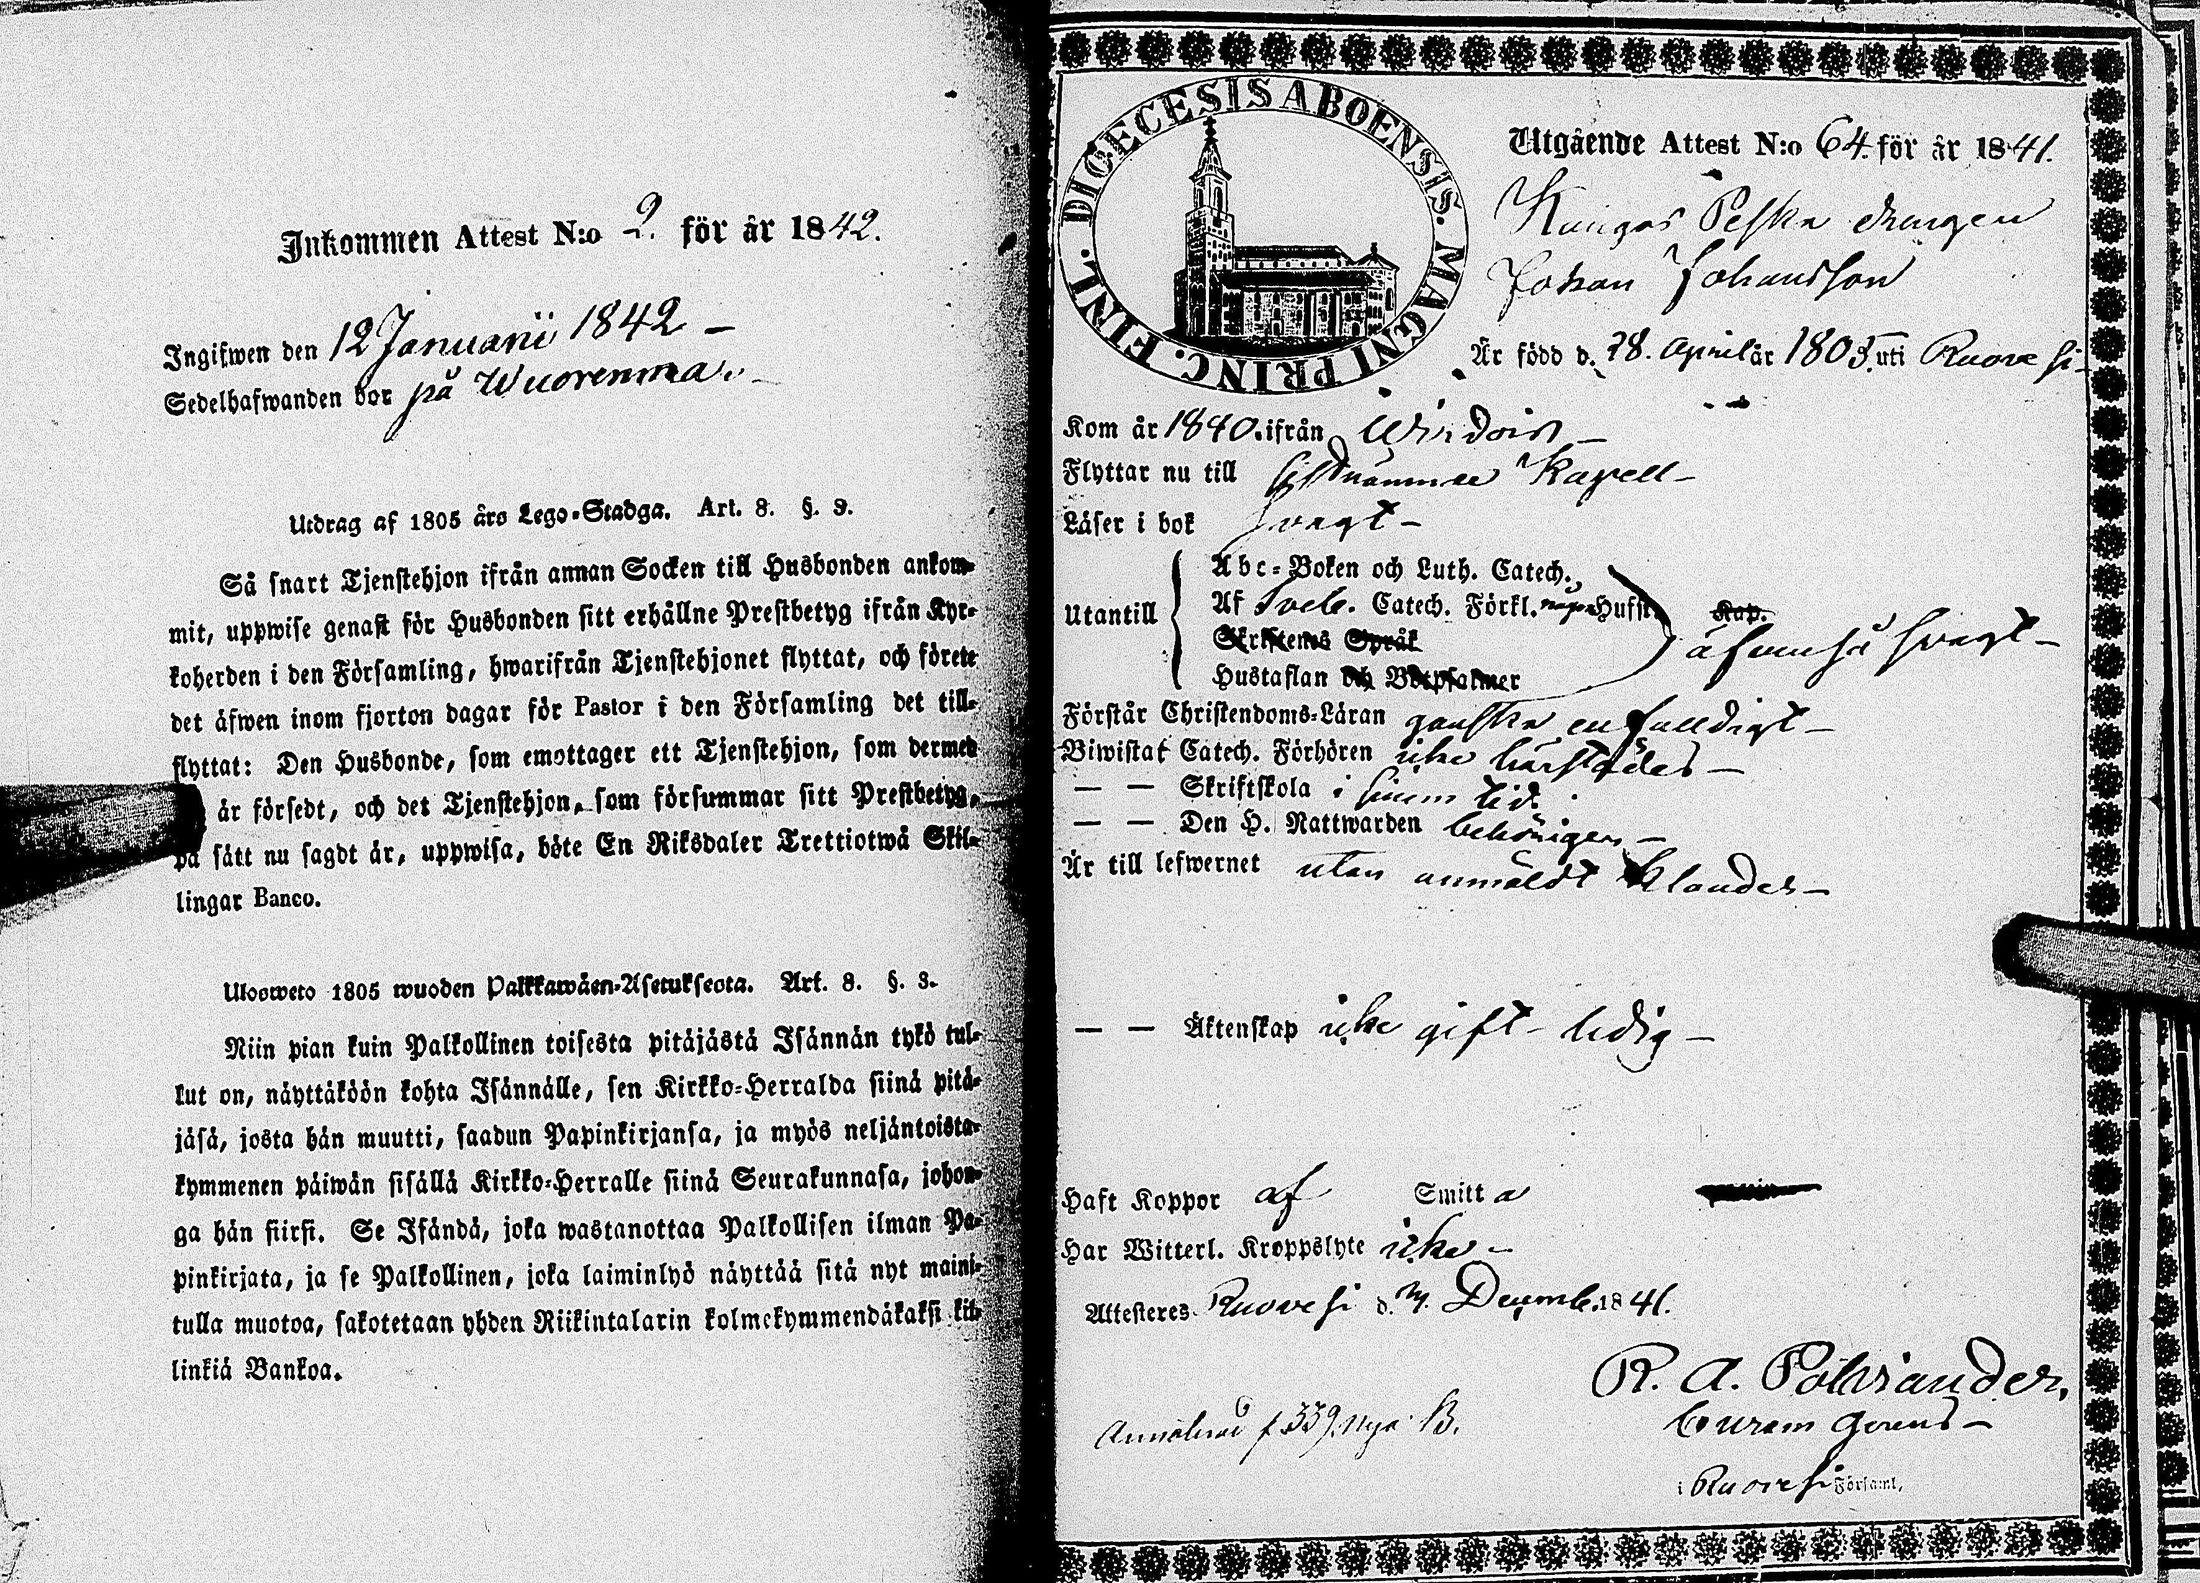 Inkommen Attest N:o 2. för år 1842.
Ingifwen den 12 Januarii 1842 –
Sedelhafwanden bor på Wuorenmaa. –
Utdrag af 1805 års Lego-Stadga. Art. 8. §. 3.
Så snart Tjenstehjon ifrån annan Socken till Husbonden ankom-
mit, uppwise genast för Husbonden sitt erhållne Prestbetyg ifrån Kyr-
koherden i den Församling, hwarifrån Tjenstehjonet flyttat, och förete
det äfwen inom fjorton dagar för Pastor i den Församling det till-
flyttat: Den Husbonde, som emottager ett Tjenstehjon, som dermed
är försedt, och det Tjenstehjon, som försummar sitt Prestbetyg,
på sätt nu sagdt är, uppwisa, böte En Riksdaler Trettiotwå Skil-
lingar Banco.
Ulosweto 1805 wuoden Palkkawäen-Asetuksesta. Art. 8. §. 3.
Niin pian kuin Palkollinen toisesta pitäjästä Isännän tykö tul-
lut on, näyttäköön kohta Isännälle, sen Kirkko-Herralda siinä pitä-
jäsä, josta hän muutti, saadun Papinkirjansa, ja myös neljäntoista-
kymmenen päiwän sisällä Kirkko-Herralle siinä Seurakunnasa, johon-
ga hän siirsi. Se Isändä, joka wastanottaa Palkollisen ilman Pa-
pinkirjata, ja se Palkollinen, joka laiminlyö näyttää sitä nyt maini-
tulla muotoa, sakotetaan yhden Riikintalarin kolmekymmendäkaksi kil-
linkiä Bankoa.
DIOECESIS ABOENSIS. MAGNI PRINC. FINL.
Utgående Attest N:o 64. för år 1841.
Kangas Peska drängen
Johan Johansson
Är född d. 28. April år 1805. uti Ruovesi –
Kom år 1840. ifrån Wirdois –
Flyttar nu till Kapell –
Läser i bok svagt –
Utantill
Abc-Boken och Luth. Catech.,
Af Sveb. Catech. Förkl. några Hufst.
Skriftenes Språk
Hustaflan och Botpsalmer
Kap.
äfvenså svagt –
Förstår Christendoms-Läran ganska enfalldigt –
Biwistat Catech. Förhören icke härstädes –
– – Skriftskola i sinom tid.
– – Den H. Nattwarden behörigen –
Är till lefwernet utan anmäldt klander –
– – Äktenskap icke gift – ledig –
Haft Koppor af Smitta
Har Witterl. Kroppslyte icke –
Attesteres Ruovesi d. Decemb. 1841.
R. A. Polviander,
Curam gerens –
i Ruovesi Församl.
f 339. nya B.